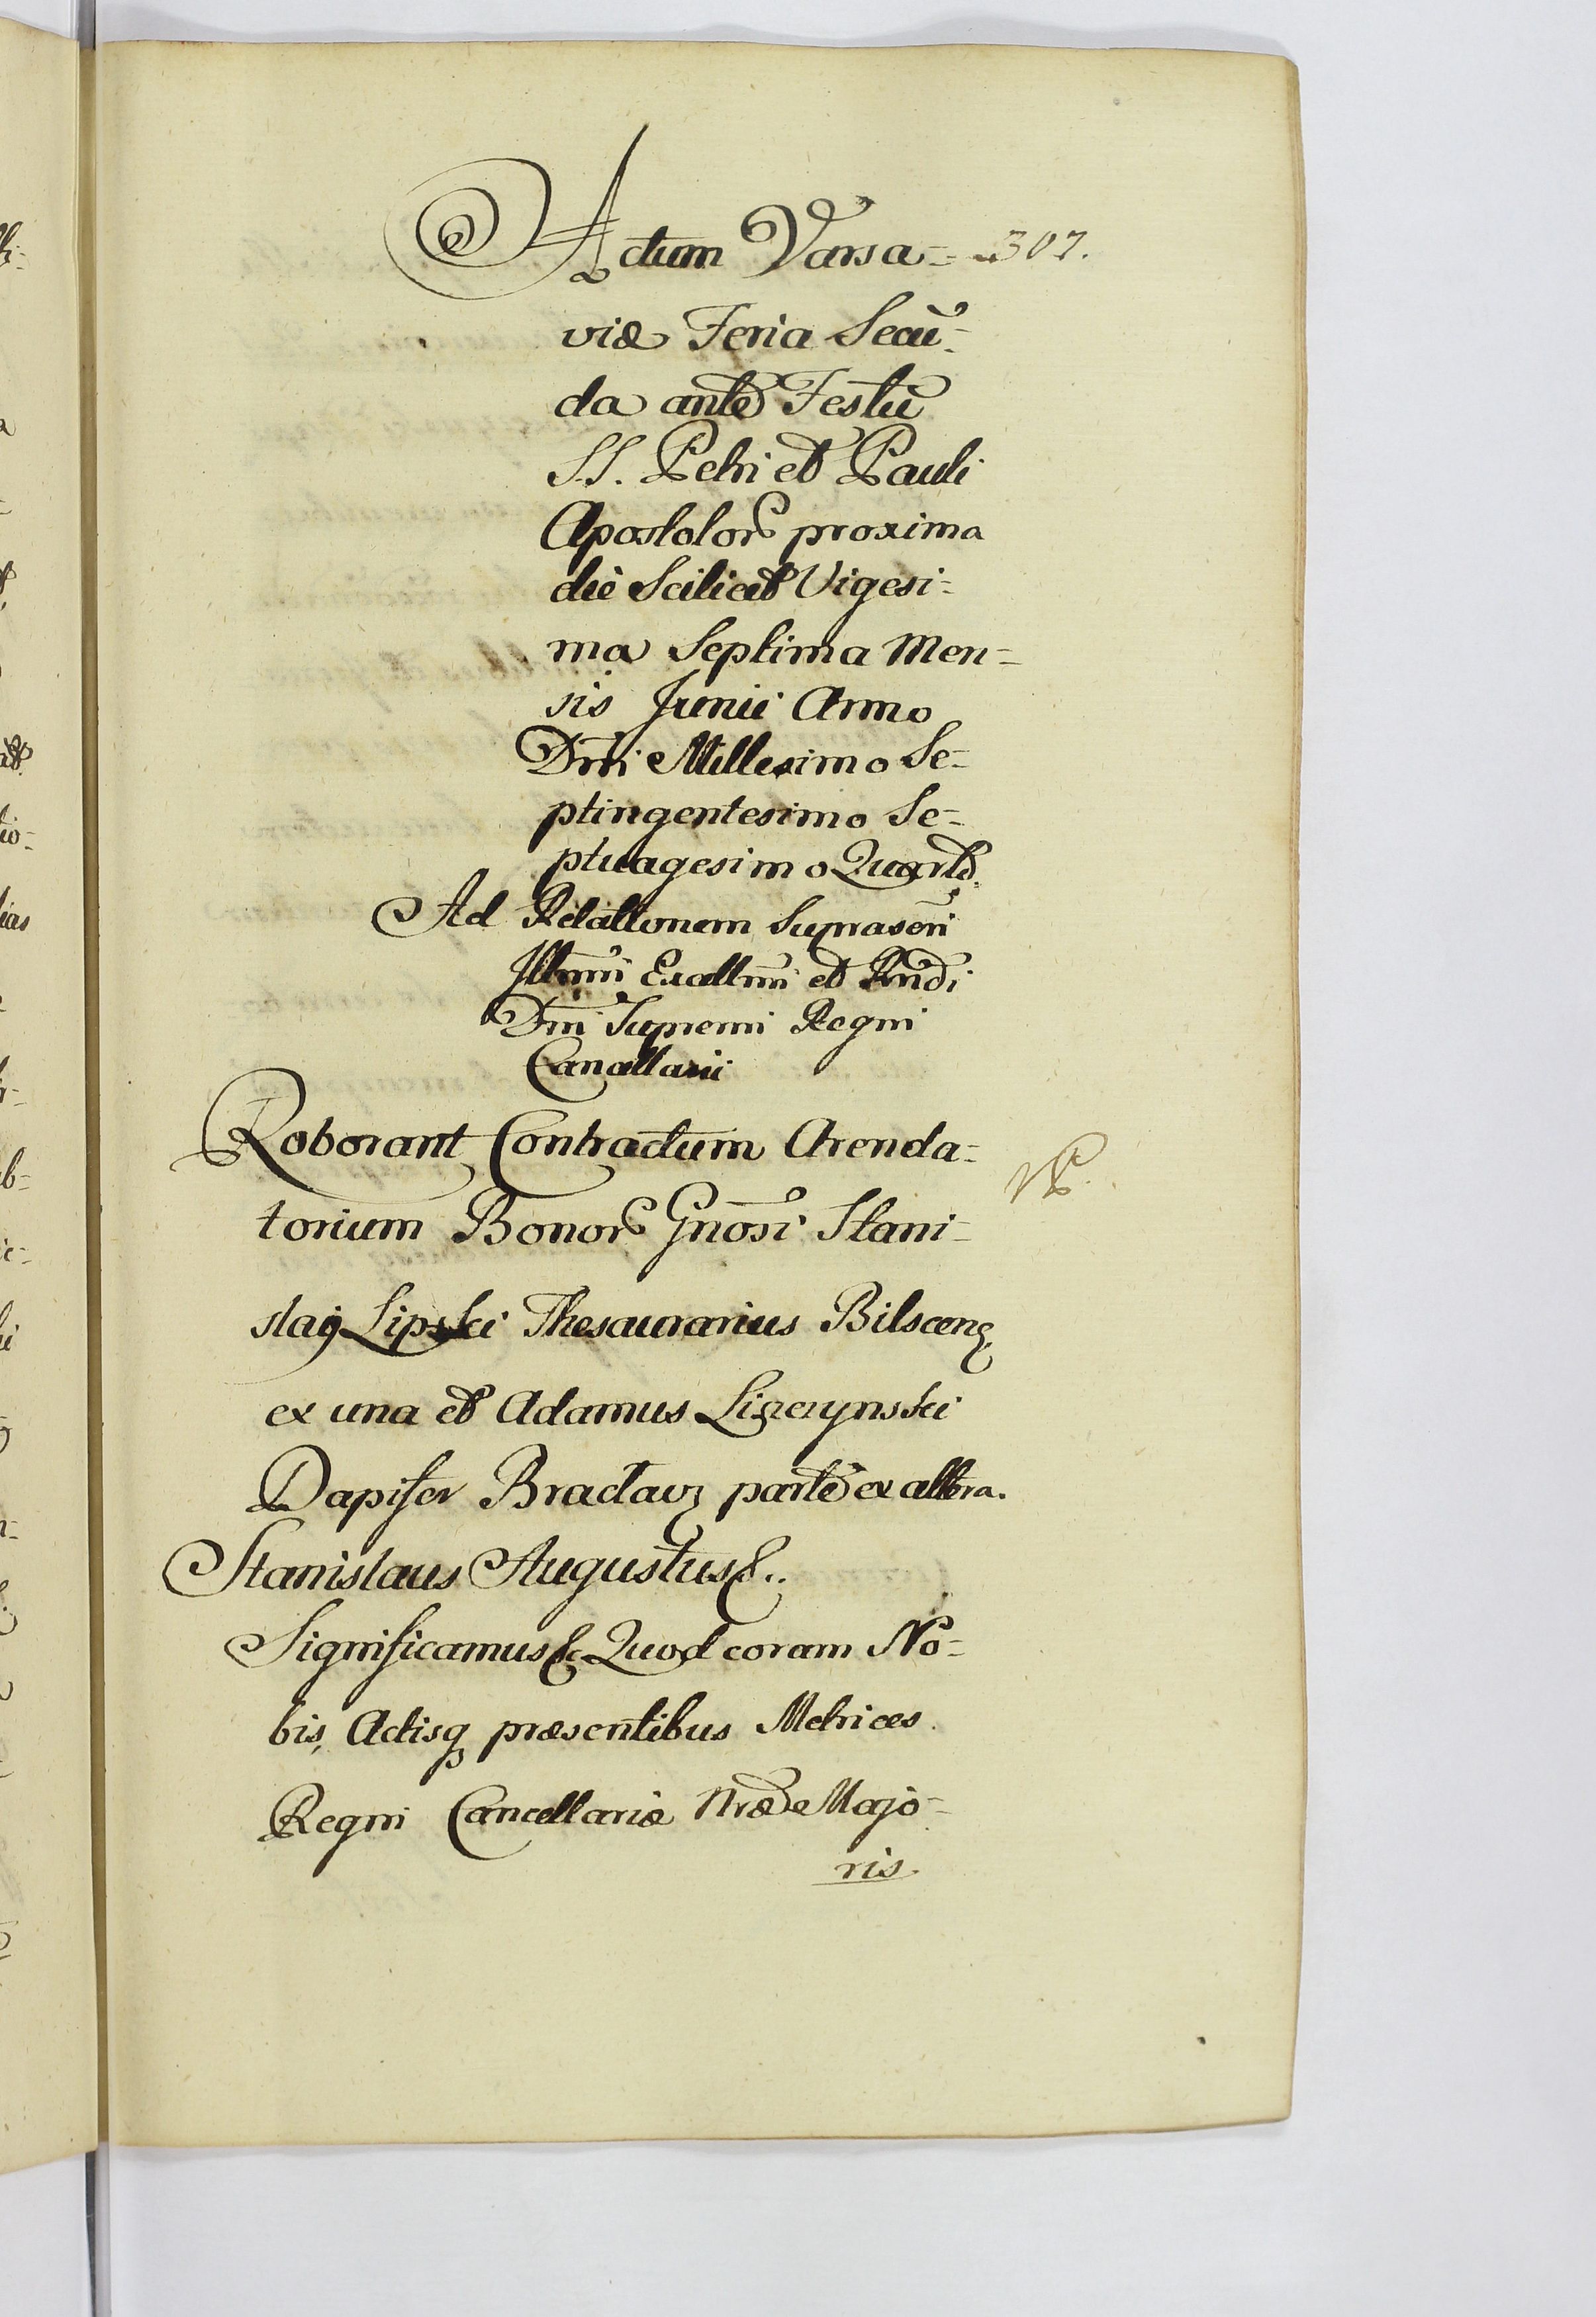 Actum Varsa= 307.
viæ Feria Secū=
da ante Festū
SS. Petri et Pauli
Apostolor proxima
die Scilicet Vigesi=
ma Septima Men=
sis Junii Anno
Dñi Millesimo Se=
ptingentesimo Se=
ptuagesimo Quarto.
Ad Relationem Suprascri
Illmi Excellmi et Rndi
Dni Supremi Regni
Cancellarii
Roborant Contractum Arenda=
torium Bonor Gnosi Stani=
slaj Lipski Thesaurarius Bilscen
ex una et Adamus Ligezynski
Dapifer Braclav parte ex altera.
Stanislaus Augustus &..
Significamus & Quod coram No=
bis, Actisq præsentibus Metrices
Regni Cancellariæ Nræ Majo=
ris